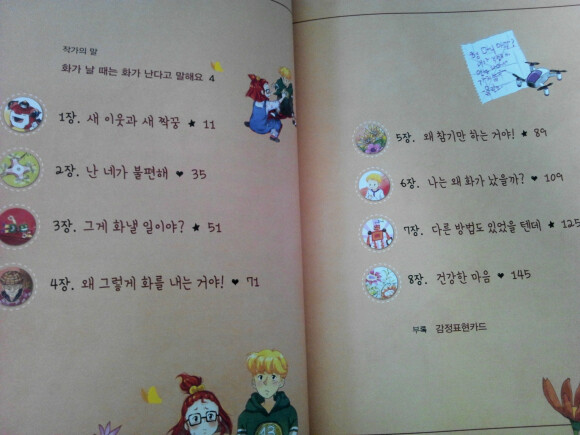 작가의 말
화가 날 때는 화가 난다고 말해요 4
1장. 새 이웃과 새 짝꿍 ★ 11
2장. 난 네가 불편해 ♥ 35
3장. 그게 화낼 일이야? ★ 51
4장. 왜 그렇게 화를 내는 거야! ♥ 71
5장. 왜 참기만 하는 거야! ★ 89
6장. 나는 왜 화가 났을까? ♥ 109
7장. 다른 방법도 있었을 텐데 ★ 125
8장. 건강한 마음 ♥ 145
부록 감정표현카드